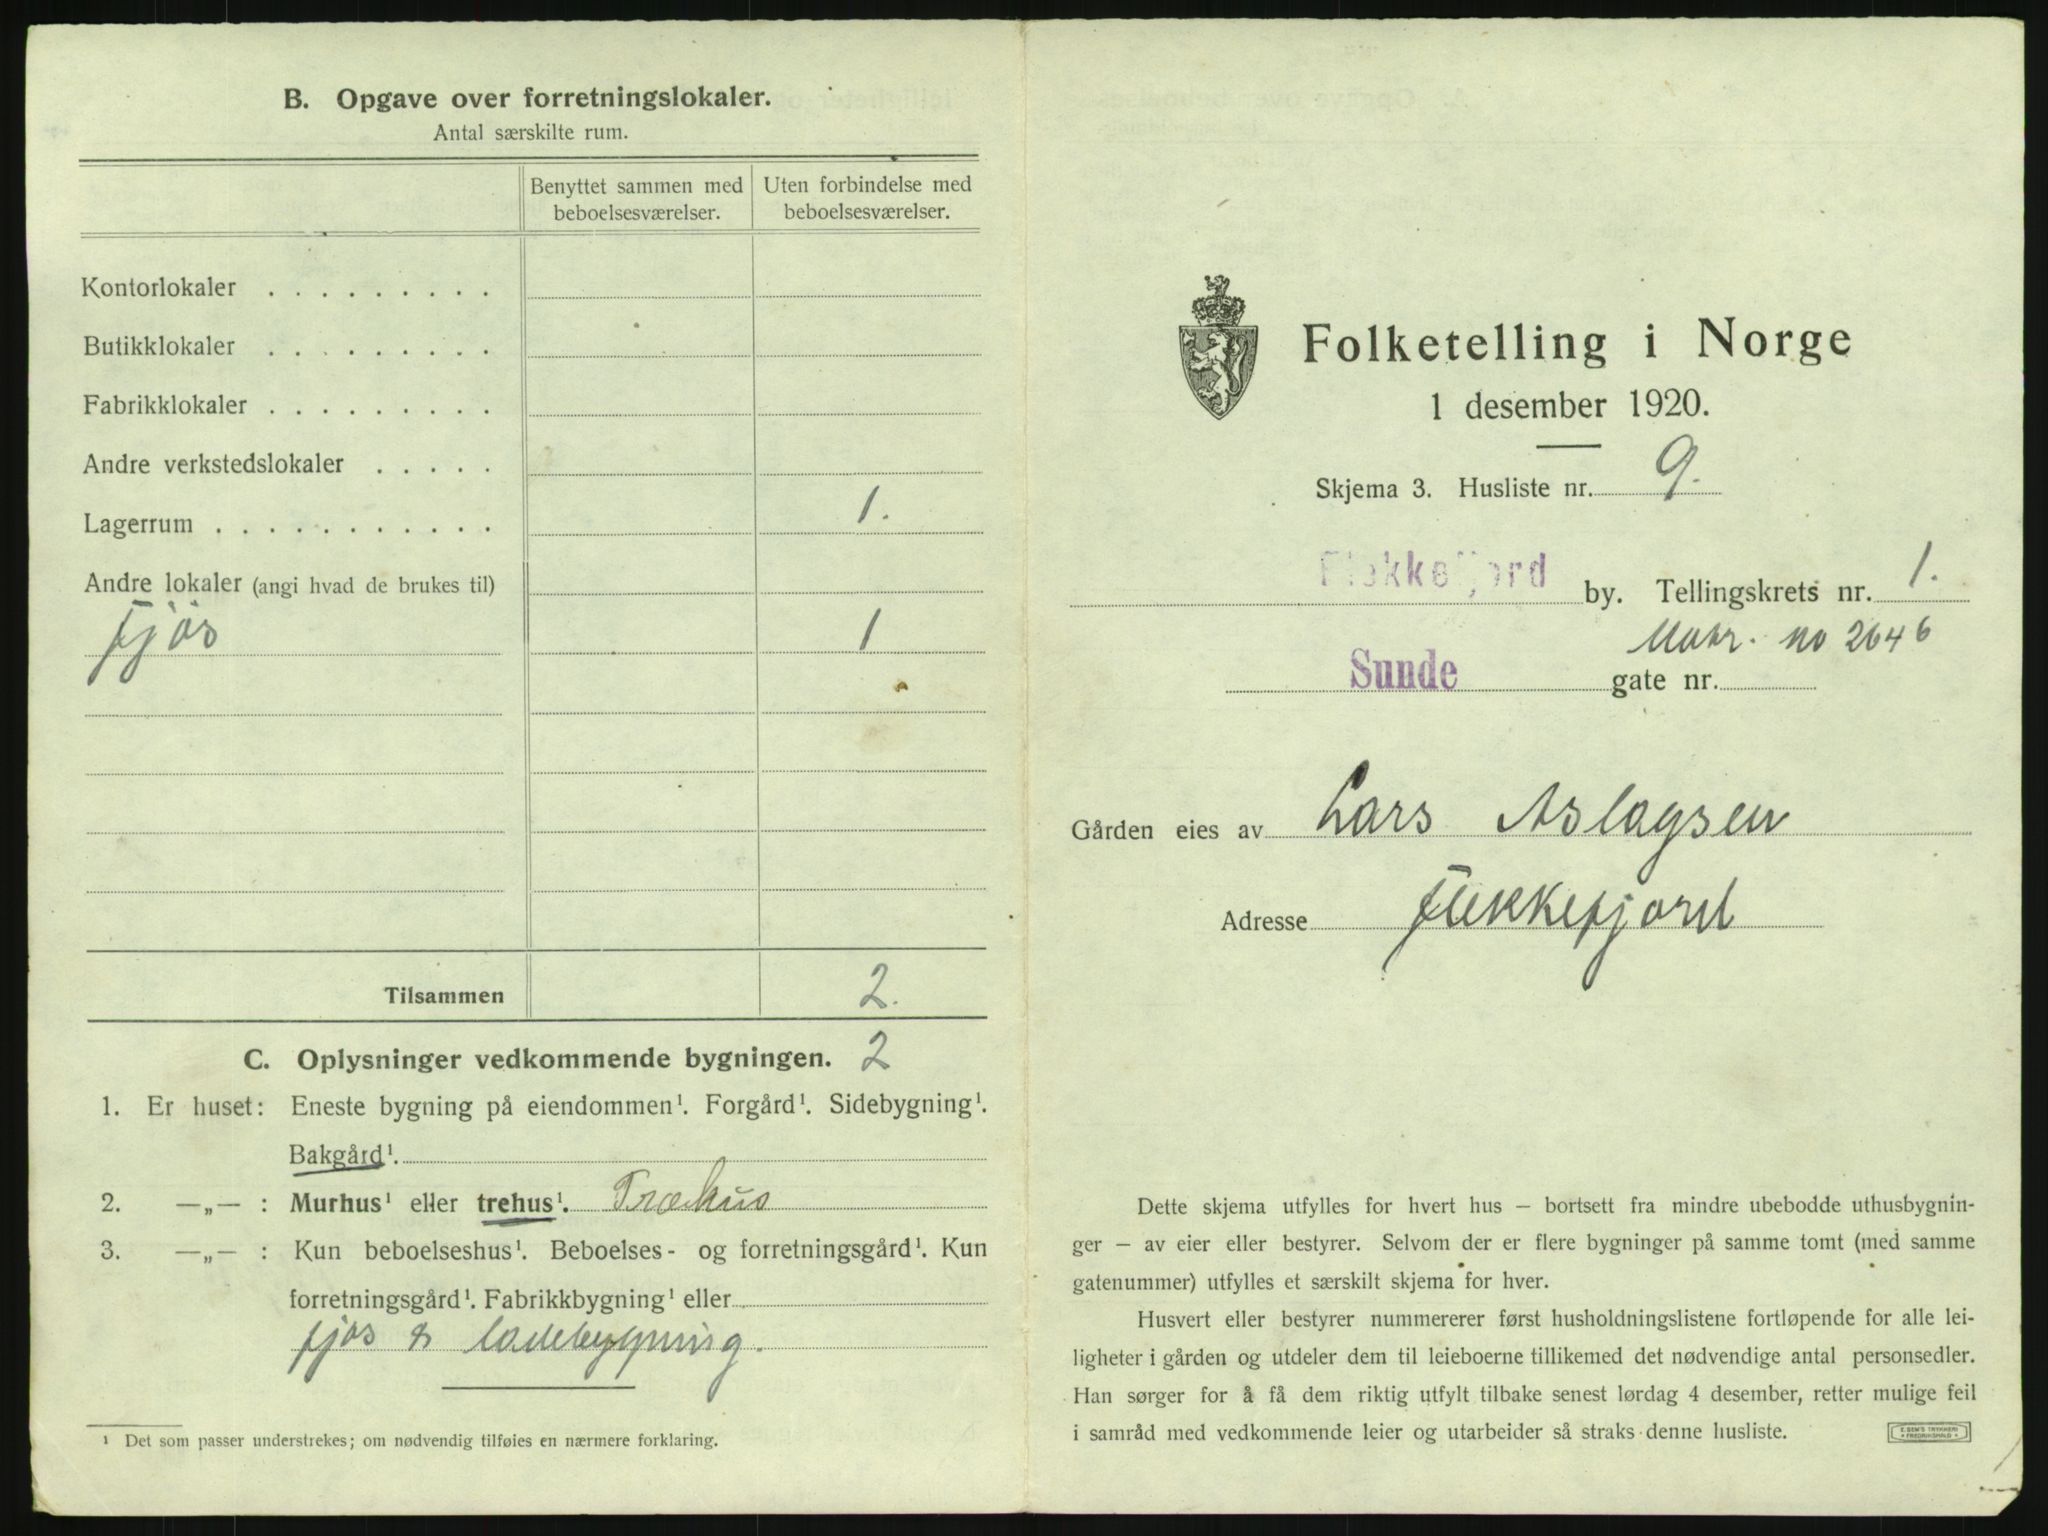 B. Opgave over forretningslokaler.
Antal særskilte rum.
Benyttet sammen med
beboelsesværelser.
Uten forbindelse med
beboelsesværelser.
Kontorlokaler . . . . . . . . .
Butikklokaler . . . . . . . . .
Fabrikklokaler . . . . . . . . .
Andre verkstedslokaler . . . . .
Lagerrum . . . . . . . . . . . 1.
Andre lokaler (angi hvad de brukes til)
fjös 1
Tilsammen 2.
C. Oplysninger vedkommende bygningen. 2
1. Er huset: Eneste bygning på eiendommen¹. Forgård¹. Sidebygning¹.
Bakgård¹.
2. —„— : Murhus¹ eller trehus¹. Træhus
3. —„— : Kun beboelseshus¹. Beboelses- og forretningsgård¹. Kun
forretningsgård¹. Fabrikkbygning¹ eller
fjøs & ladebygning.
¹ Det som passer understrekes; om nødvendig tilføies en nærmere forklaring.
Folketelling i Norge
1 desember 1920.
Skjema 3. Husliste nr. 9.
Flekkefjord by. Tellingskrets nr. 1.
Matr. no 2646
Sunde gate nr.
Gården eies av Lars Aslagsen
Adresse Flekkefjord
Dette skjema utfylles for hvert hus – bortsett fra mindre ubebodde uthusbygnin-
ger – av eier eller bestyrer. Selvom der er flere bygninger på samme tomt (med samme
gatenummer) utfylles et særskilt skjema for hver.
Husvert eller bestyrer nummererer først husholdningslistene fortløpende for alle lei-
ligheter i gården og utdeler dem til leieboerne tillikemed det nødvendige antal personsedler.
Han sørger for å få dem riktig utfylt tilbake senest lørdag 4 desember, retter mulige feil
i samråd med vedkommende leier og utarbeider så straks denne husliste.
E. SEM'S TRYKKERI
FREDRIKSHALD